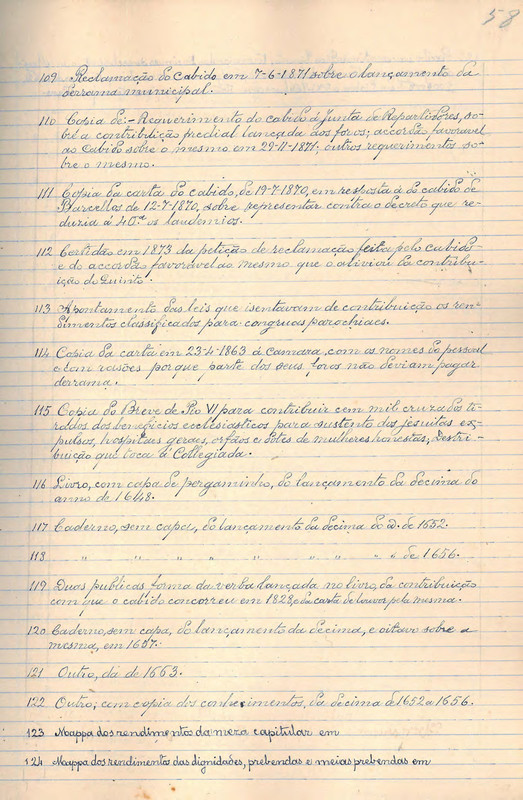 58
109 Reclamação do Cabido em 7-6-1871 sobre o lançamento da
derrama municipal.
110 Copia de:- Requerimento do cabido á Junta de Repartidores, so-
bre a contribuição predial lançada aos foros; accordão favoravel
ao Cabido sobre o mesmo em 29-11-1871; outros requerimentos so-
bre o mesmo.
111 Copia da carta do cabido, de 19-7-1870, em resposta á do cabido de
Barcellos de 12-7-1870, sobre representar contra o Decreto que re-
duzia á 40.ª os laudemios.
112 Certidão em 1873 da petição de reclamação feita pelo cabido
e do accordão favoravel ao mesmo que o aliviou da contribu-
ição do Quinto.
113 Apontamento das leis que isentavam de contribuição os ren-
dimentos classificados para congruas parochiaes.
114 Copia da carta em 23-4-1863 á Camara, com os nomes do pessoal
e com rasões porque parte dos seus foros não deviam pagar
derrama.
115 Copia do Breve de Pio VI para contribuir cem mil cruzados ti-
rados dos beneficios ecclesiasticos para sustento dos jesuitas ex-
pulsos, hospitaes geraes, orfãos e dotes de mulheres honestas; destri-
buição que toca á Collegiada.
116 Livro, com capa de pergaminho, do lançamento da decima do
anno de 1648.
117 Caderno, sem capa, do lançamento da decima do d. de 1652.
118 " " " " " " " " " de 1656.
119 Duas publicas forma da verba lançada no livro, da contribuição
com que o cabido concorreu em 1828, e da carta de louvor pela mesma.
120 Caderno, sem capa, do lançamento da decima, e oitavo sobre a
mesma, em 1657.
121 Outro, dá de 1663.
122 Outro, com copia dos conhecimentos, da decima de 1652 a 1656.
123 Mappa dos rendimentos da meza capitular em
124 Mappa dos rendimentos das dignidades, prebendas e meias prebendas em